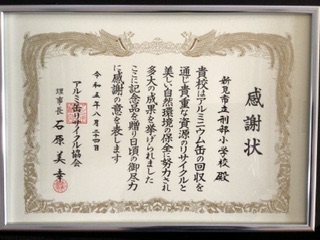 感謝状
新見市立刑部小学校 殿
貴校はアルミニウム缶の回収を
通じ貴重な資源のリサイクルと
美しい自然環境の保全に努力され
多大の成果を挙げられました
ここに記念品を贈り日頃の御尽力
に感謝の意を表します
令和五年八月二十四日
アルミ缶リサイクル協会
理事長 石原美幸